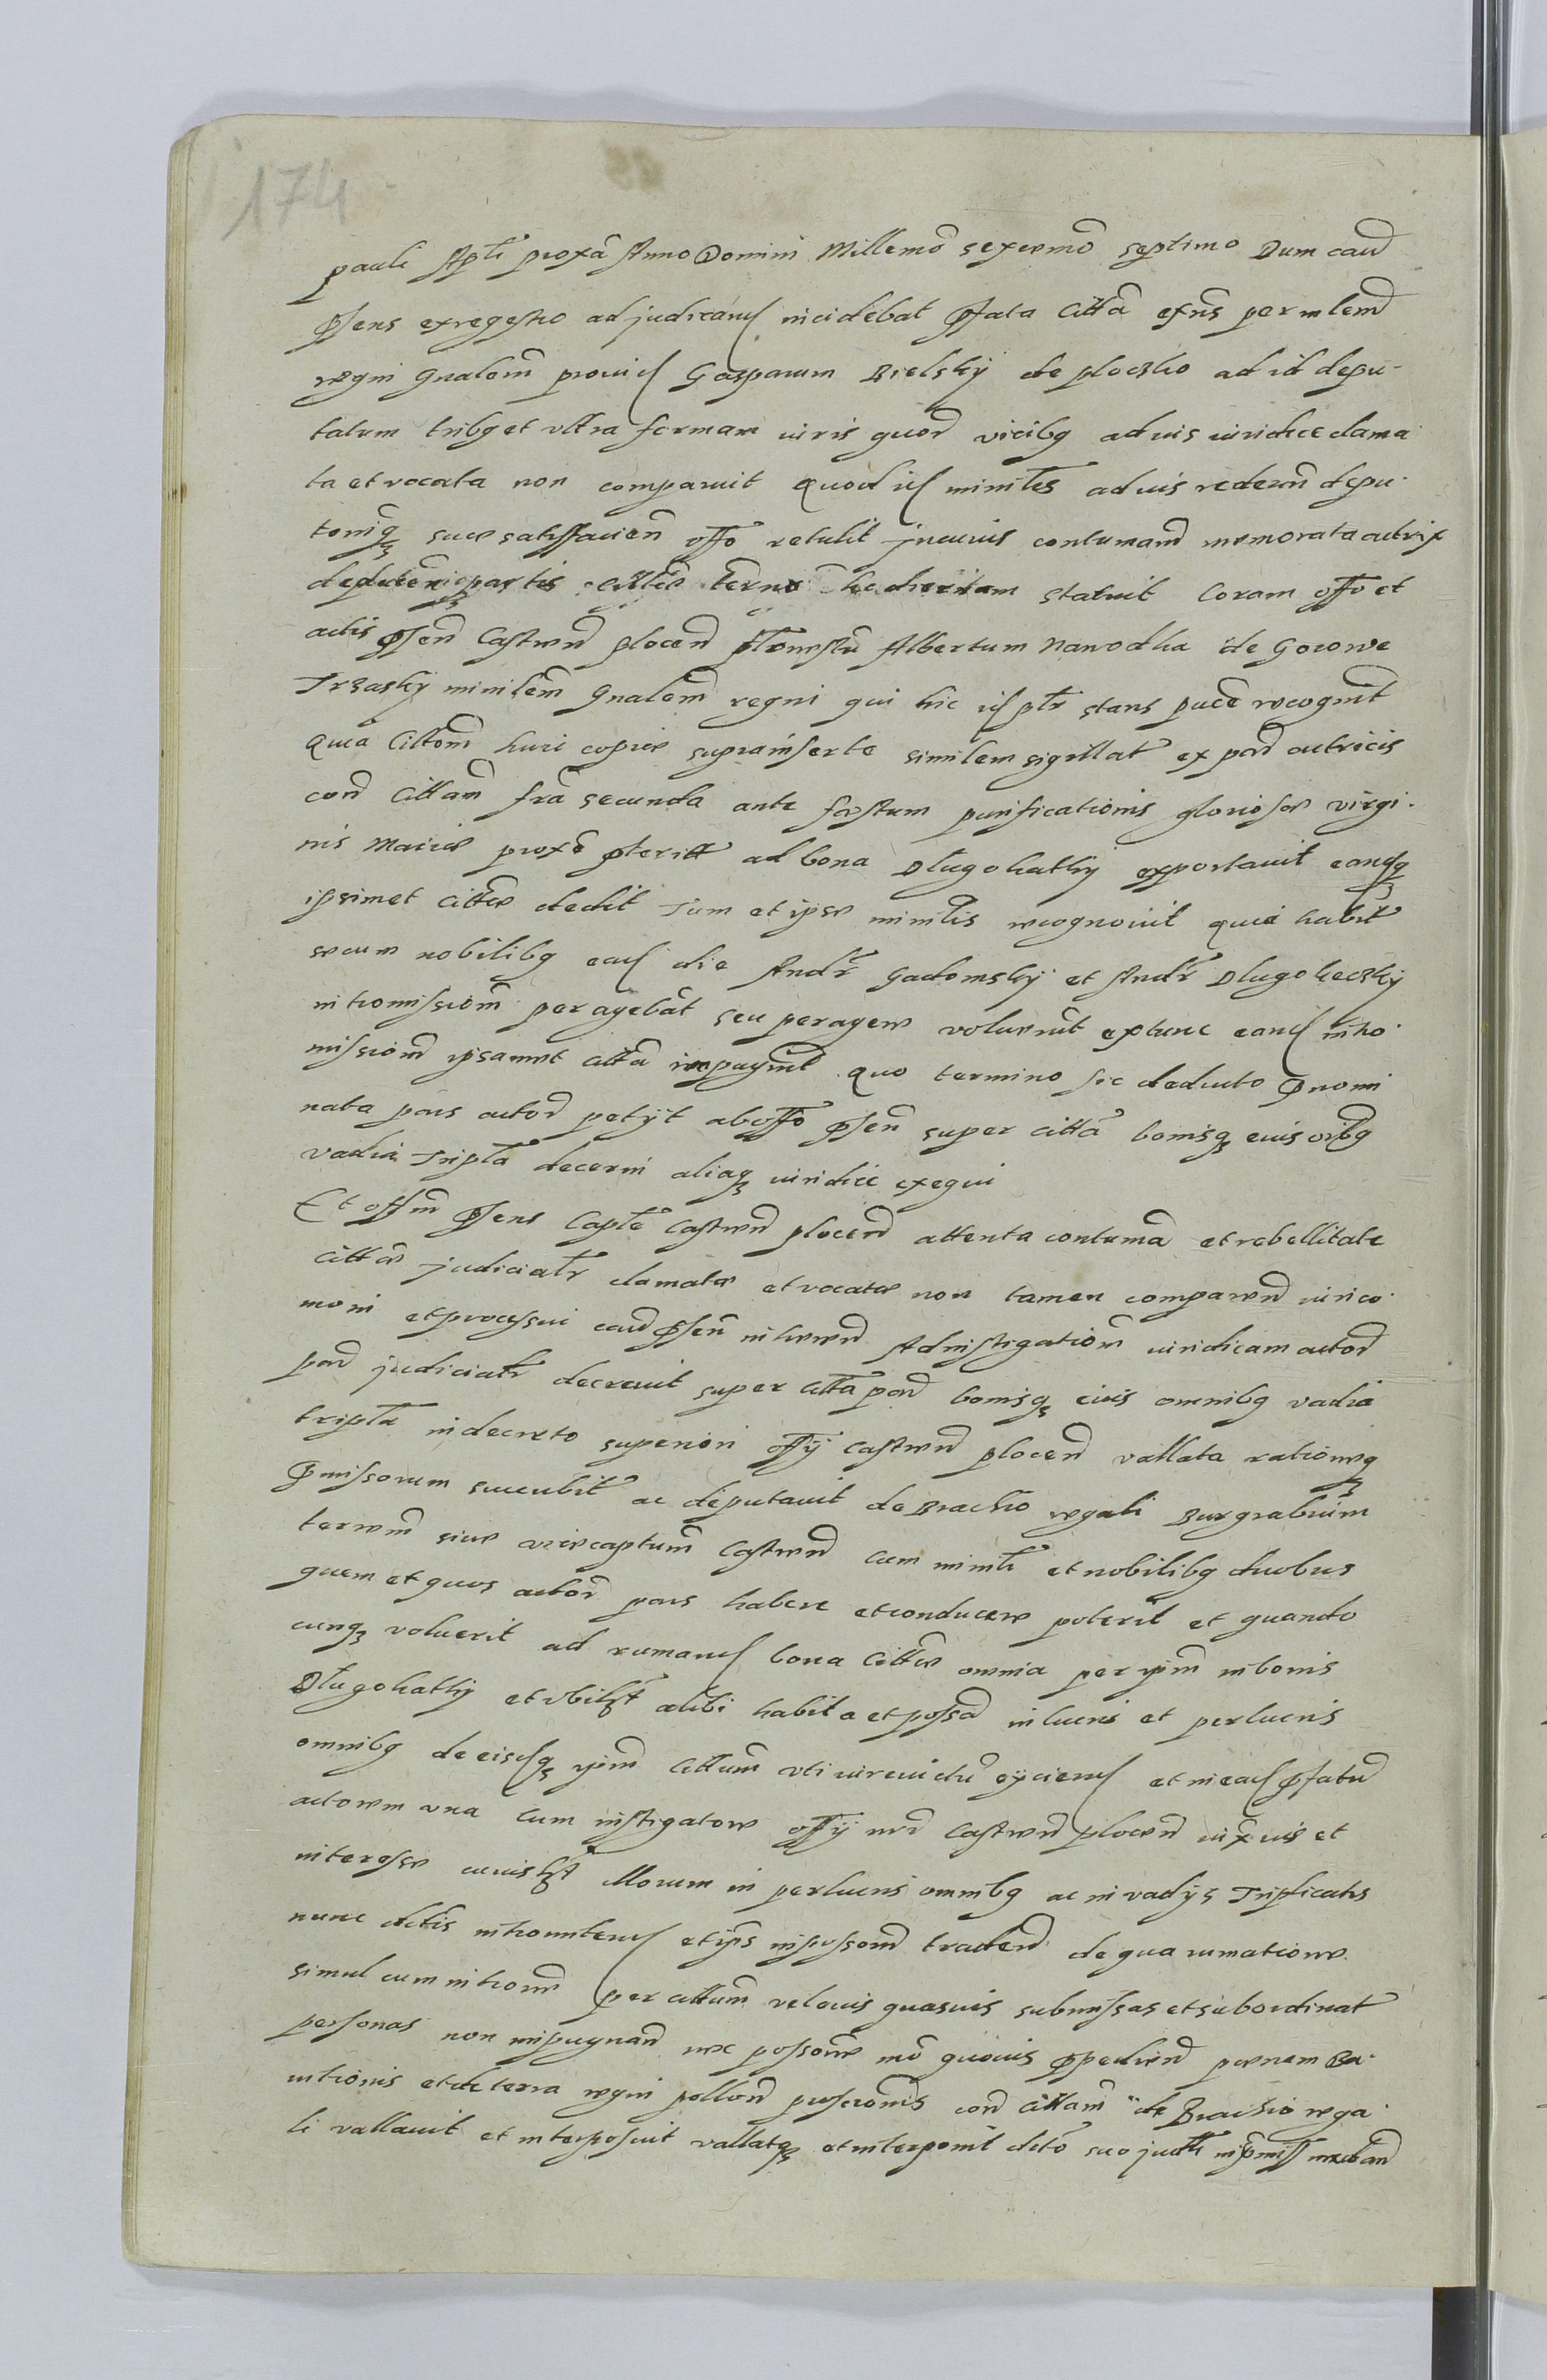 174
pauli Apli proxa Anno Domini Millemo sexcemo septimo Dum caud
Psens exregestro adjudicand incidebat Pfata Citta exns per mlem
regni gnalem provid Gasparum Bielsky de plocsko ad id depu-
tatum tribq et vltra formam iuris quor vicibq ad ius iuridice clama
ta et vocata non comparuit Quod id minlis ad ius redeun depu-
tomq suae satisfacien offo retulit in cuius contumam memorata actrix
statuit Coram offo et
actis Psen Castren plocen Albertum Nawodka de Gorowe
Trzasky minlem gnalem regni qui hic id plr stans puce recognit
Quia Cittom huic copiae suprainserte similem sigillat ex par actricis
con Cittam fra secunda ante festum purificationis gloriosae virgi-
nis Mariae proxe pterit ad bona Dlugokathy exportavit eandq
ipsimet cittae dedit Tum et ipse minlis recognovit quia habit
secum nobilibq ead die Andr Gadomsky et Andr Dlugokecsky
intromissiom peragebat seu peragere voluerut extunc eand intro-
missiom ipsamet citta impugnt Quo termino sic deducto Pnomi
nata pars actor petyt ab offo Psen super citta bonisq eius oibq
vadia Tripla decerni aliaq iuridice exequi
Et offm Psens Capte Castren plocen attenta contuma et rebellitate
cittae judicialr clamatae et vocatae non tamen comparen iurico-
moni et processui caud Psen Ad instigatiom iuridicam actor
par judicialr decrevit super citta par bonisq eius omnibq vadia
tripla in decreto superiori offy castren plocen vallata rationeq
Pmissorum succubit ac deputavit de Brachio regali Burgrabium
terrem sive vicecaptum Castren cum minli et nobilibq duobus
quem et quos actor pars habere et conducere poterit et quando
cunq voluerit ad rumand bona Cittae omnia per ipm in bonis
Dlugokathy et vbilt alibi habita et possa in lucris et perlucris
omnibq de eisdq ipm Cittum vti iurevictu eyciend et in ead Pfatu
actorem vna cum instigatore offy nri Castren plocen iux ius et
interesse cuiuslt illorum in perlucris omnibq ac in vadys Triplicatis
nunc dctis intromittend et ips in possom traden de qua rumatione
simul cum introme per cittum vel cuius quasuis submissas et subordinat
personas non impugnan nec possome mo quouis Ppedien poenam Ba-
nitionis et de terra regni pollon proscromis con cittam de Brachio rega-
li vallavit et interposuit vallatq et interponit dcto suo judli